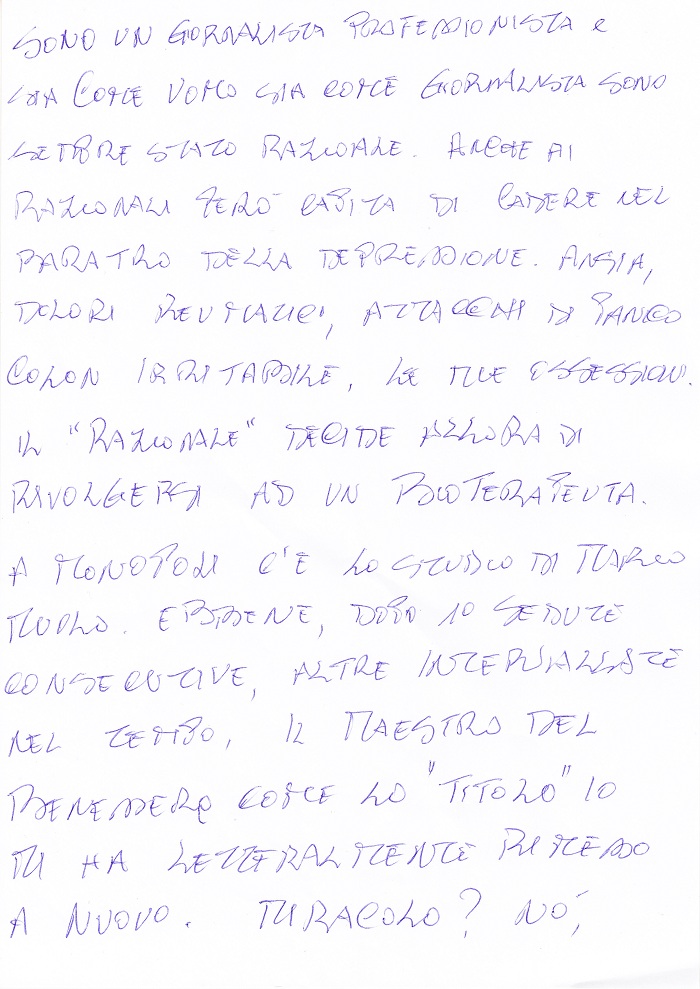 SONO UN GIORNALISTA PROFESSIONISTA e
SIA COME UOMO SIA COME GIORNALISTA SONO
SEMPRE STATO RAZIONALE. ANCHE AI
RAZIONALI PERÒ CAPITA DI CADERE NEL
BARATRO DELLA DEPRESSIONE. ANSIA,
DOLORI REUMATICI, ATTACCHI DI PANICO
COLON IRRITABILE, LE MIE OSSESSIONI.
IL "RAZIONALE" DECIDE ALLORA DI
RIVOLGERSI AD UN BIOTERAPEUTA.
A MONOPOLI C'E LO STUDIO DI MARCO
MUOLO. EBBENE, DOPO 10 SEDUTE
CONSECUTIVE, ALTRE INTERVALLATE
NEL TEMPO, IL MAESTRO DEL
BENESSERE COME LO "TITOLO" IO
MI HA LETTERALMENTE RIMESSO
A NUOVO. MIRACOLO? NO,